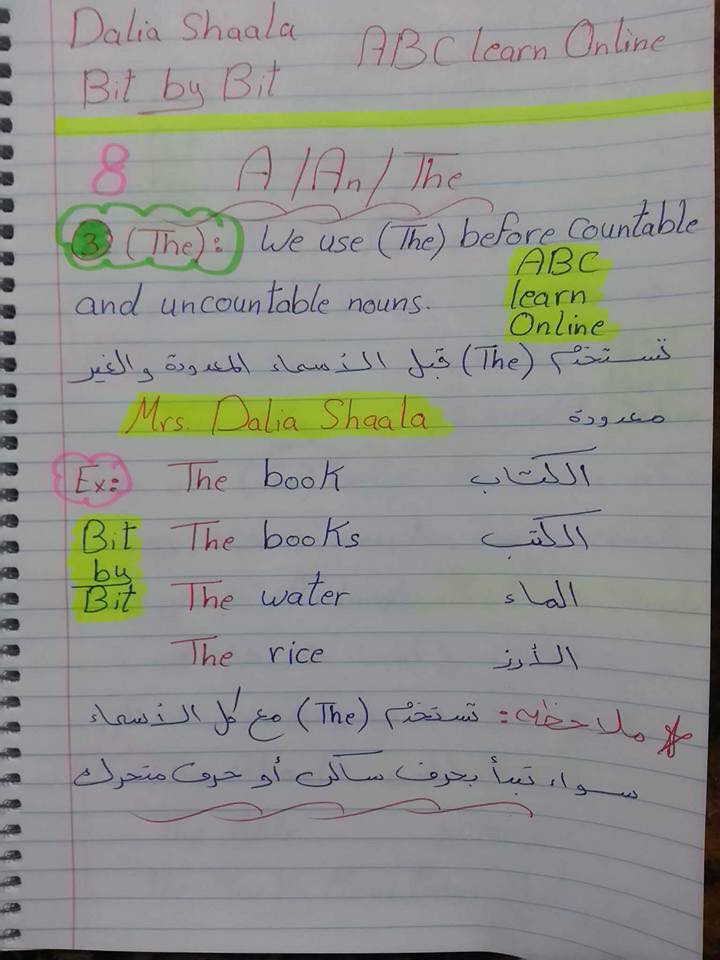 Dalia Shaala
ABC learn Online
Bit by Bit
8
A / An / The
3 (The): We use (The) before Countable
and uncountable nouns.
ABC
learn
Online
تستخدم (The) قبل الأسماء المعدودة والغير
معدودة
Mrs. Dalia Shaala
Ex: The book الكتاب
Bit by Bit
The books الكتب
The water الماء
The rice الأرز
* ملاحظة: تستخدم (The) مع كل الأسماء
سواء تبدأ بحرف ساكن أو حرف متحرك